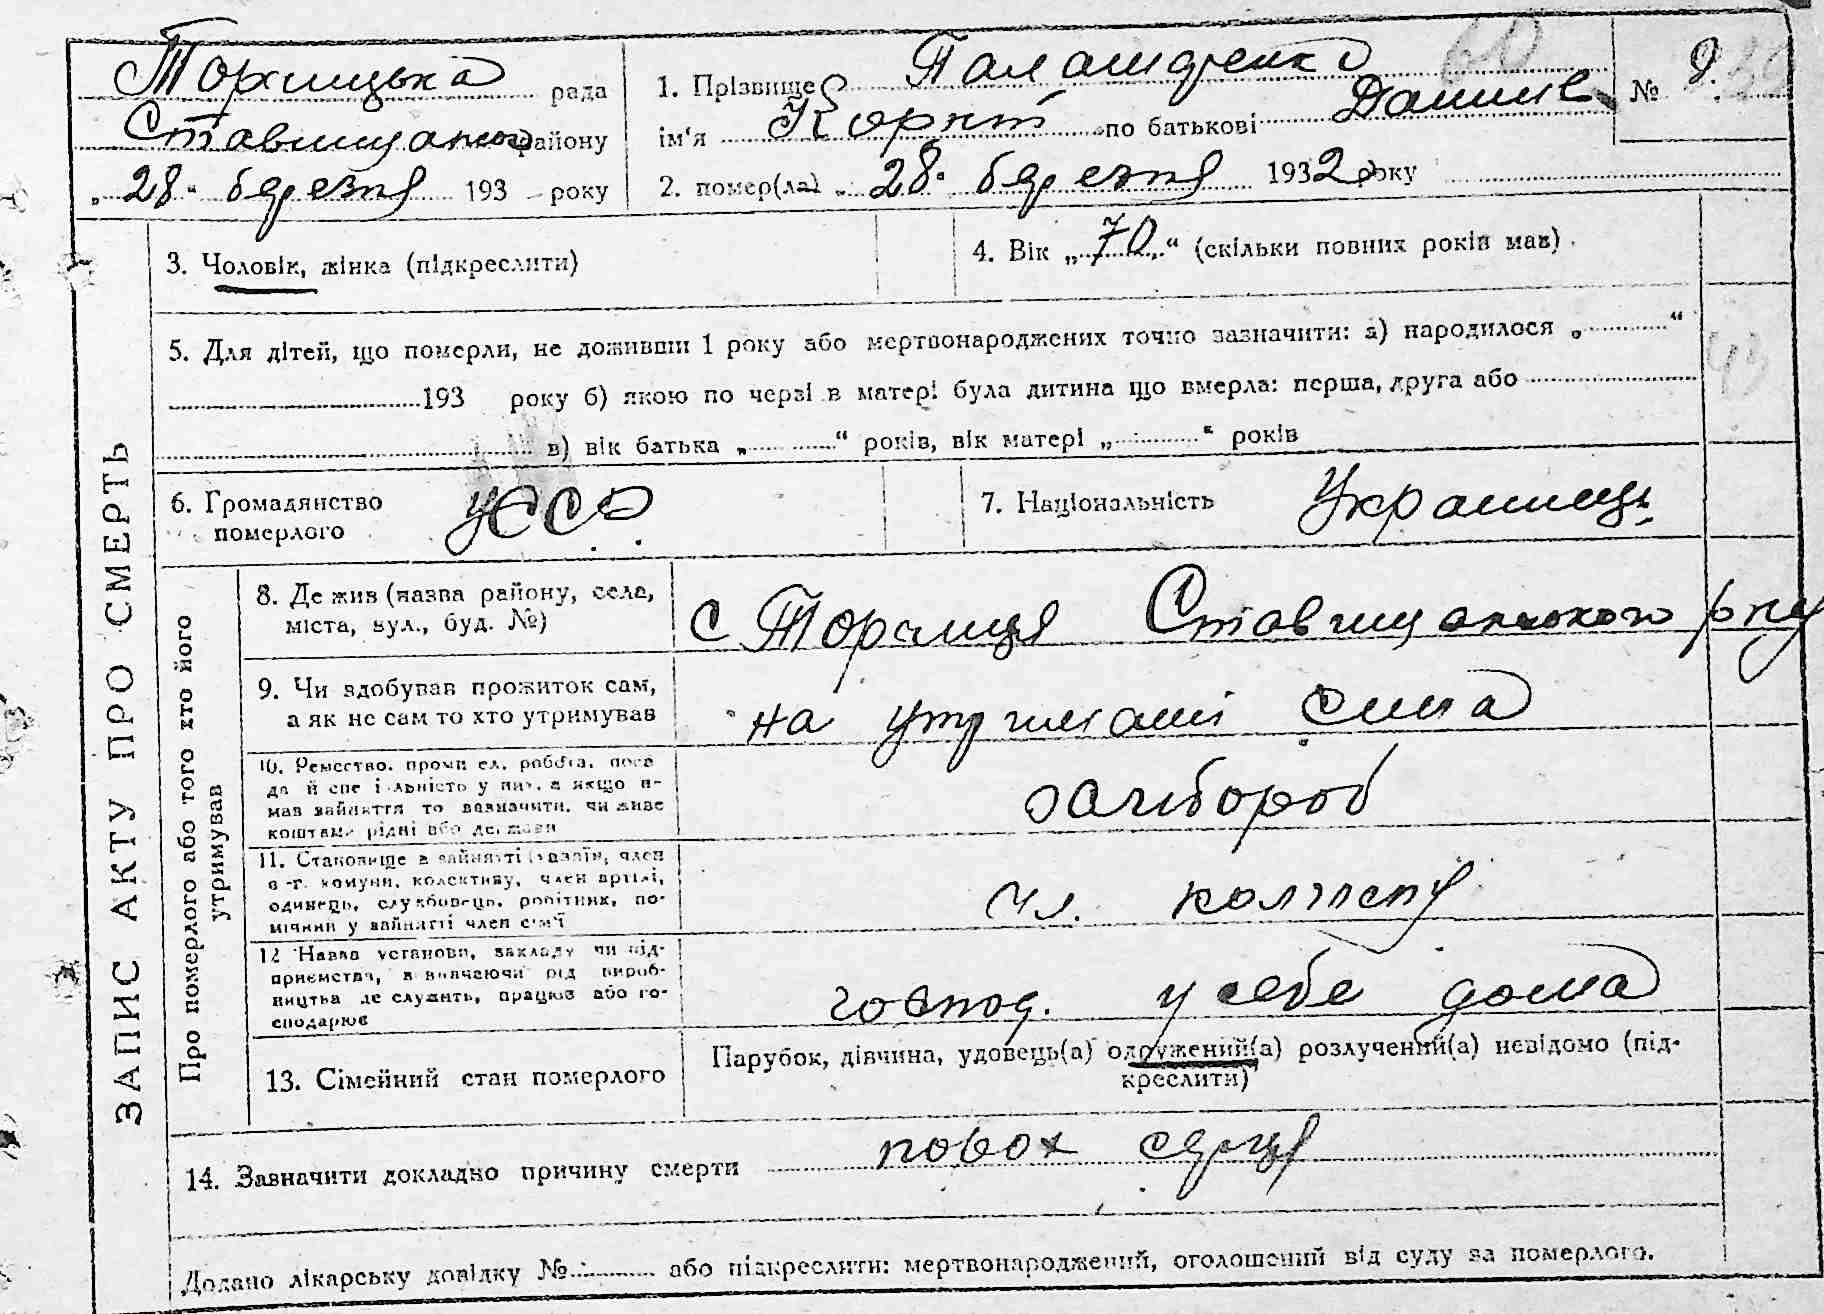 Торчицька рада
Ставищанського району
„28" березня 193 року
1. Прізвище Паламаренко
ім'я Корній по батькові Данилов.
№ 9.
2. помер(ла) „28" березня 1932 року
3. Чоловік, жінка (підкреслити)
4. Вік „70" (скільки повних років мав)
5. Для дітей, що померли, не доживши 1 року або мертвонароджених точно зазначити: а) народилося „ "
193 року б) якою по черзі в матері була дитина що вмерла: перша, друга або
в) вік батька „ " років, вік матері „ " років
6. Громадянство
померлого
УССР
7. Національність Українець
ЗАПИС АКТУ ПРО СМЕРТЬ
Про померлого або того хто його
утримував
8. Де жив (назва району, села,
міста, вул., буд. №)
с Торчиця Ставищанського р-ну
9. Чи здобував прожиток сам,
а як не сам то хто утримував
на утримані сина
10. Ремество, промисел, робота, поса
да й спеціальність у них, а якщо не
мав зайняття то зазначити, чи живе
коштами рідні або держави
хлібороб
11. Становище в зайнятті (хазяїн, член
с.-г. комуни, колективу, член артілі,
одинець, службовець, робітник, по-
мічний у зайнятті член сім'ї
чл. колгоспу
12 Назва установи, закладу чи під-
приємства, визначаючи рід вироб-
ництва де служить, працює або го-
сподарює
господ. у себе дома
13. Сімейний стан померлого
Парубок, дівчина, удовець(а) одружений(а) розлучений(а) невідомо (під-
креслити)
14. Зазначити докладно причину смерти порок серця
Додано лікарську довідку № або підкреслити: мертвонароджений, оголошений від суду за померлого.